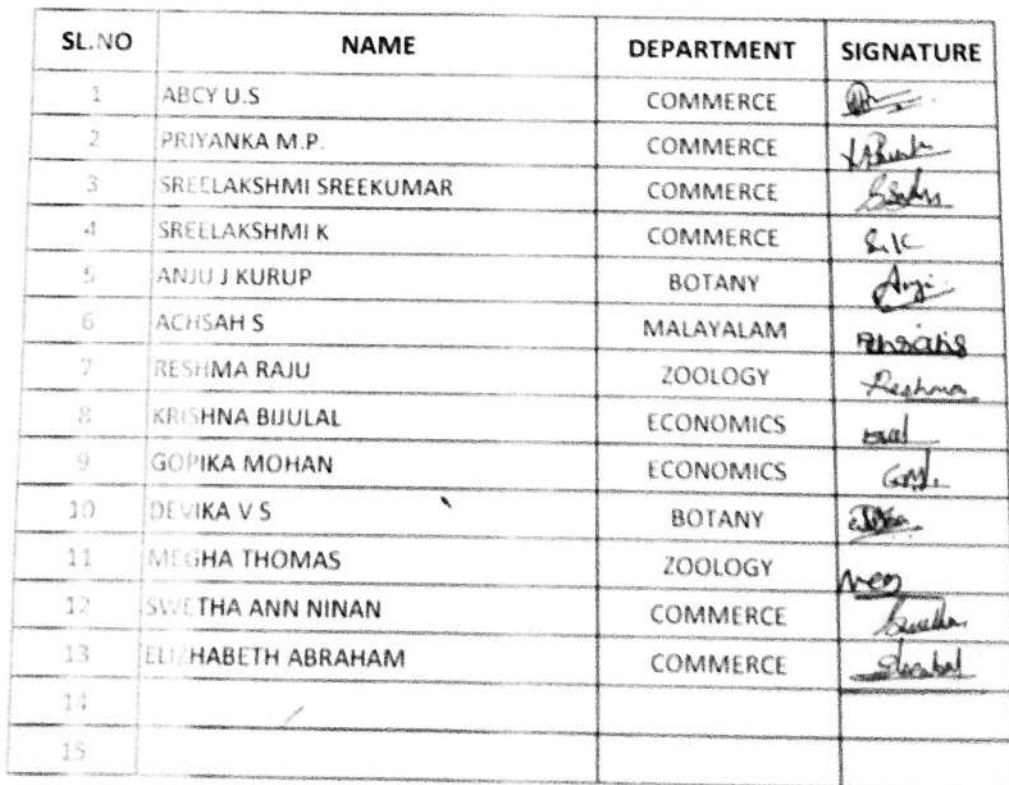 SL.NO NAME DEPARTMENT SIGNATURE
1 ABCY U.S COMMERCE
2 PRIYANKA M.P. COMMERCE
3 SREELAKSHMI SREEKUMAR COMMERCE
4 SREELAKSHMI K COMMERCE S.K
5 ANJU J KURUP BOTANY Anju
6 ACHSAH S MALAYALAM
7 RESHMA RAJU ZOOLOGY Reshma
8 KRISHNA BIJULAL ECONOMICS
9 GOPIKA MOHAN ECONOMICS
10 DEVIKA V S BOTANY
11 MEGHA THOMAS ZOOLOGY
12 SWETHA ANN NINAN COMMERCE Swetha
13 ELIZHABETH ABRAHAM COMMERCE
14
15